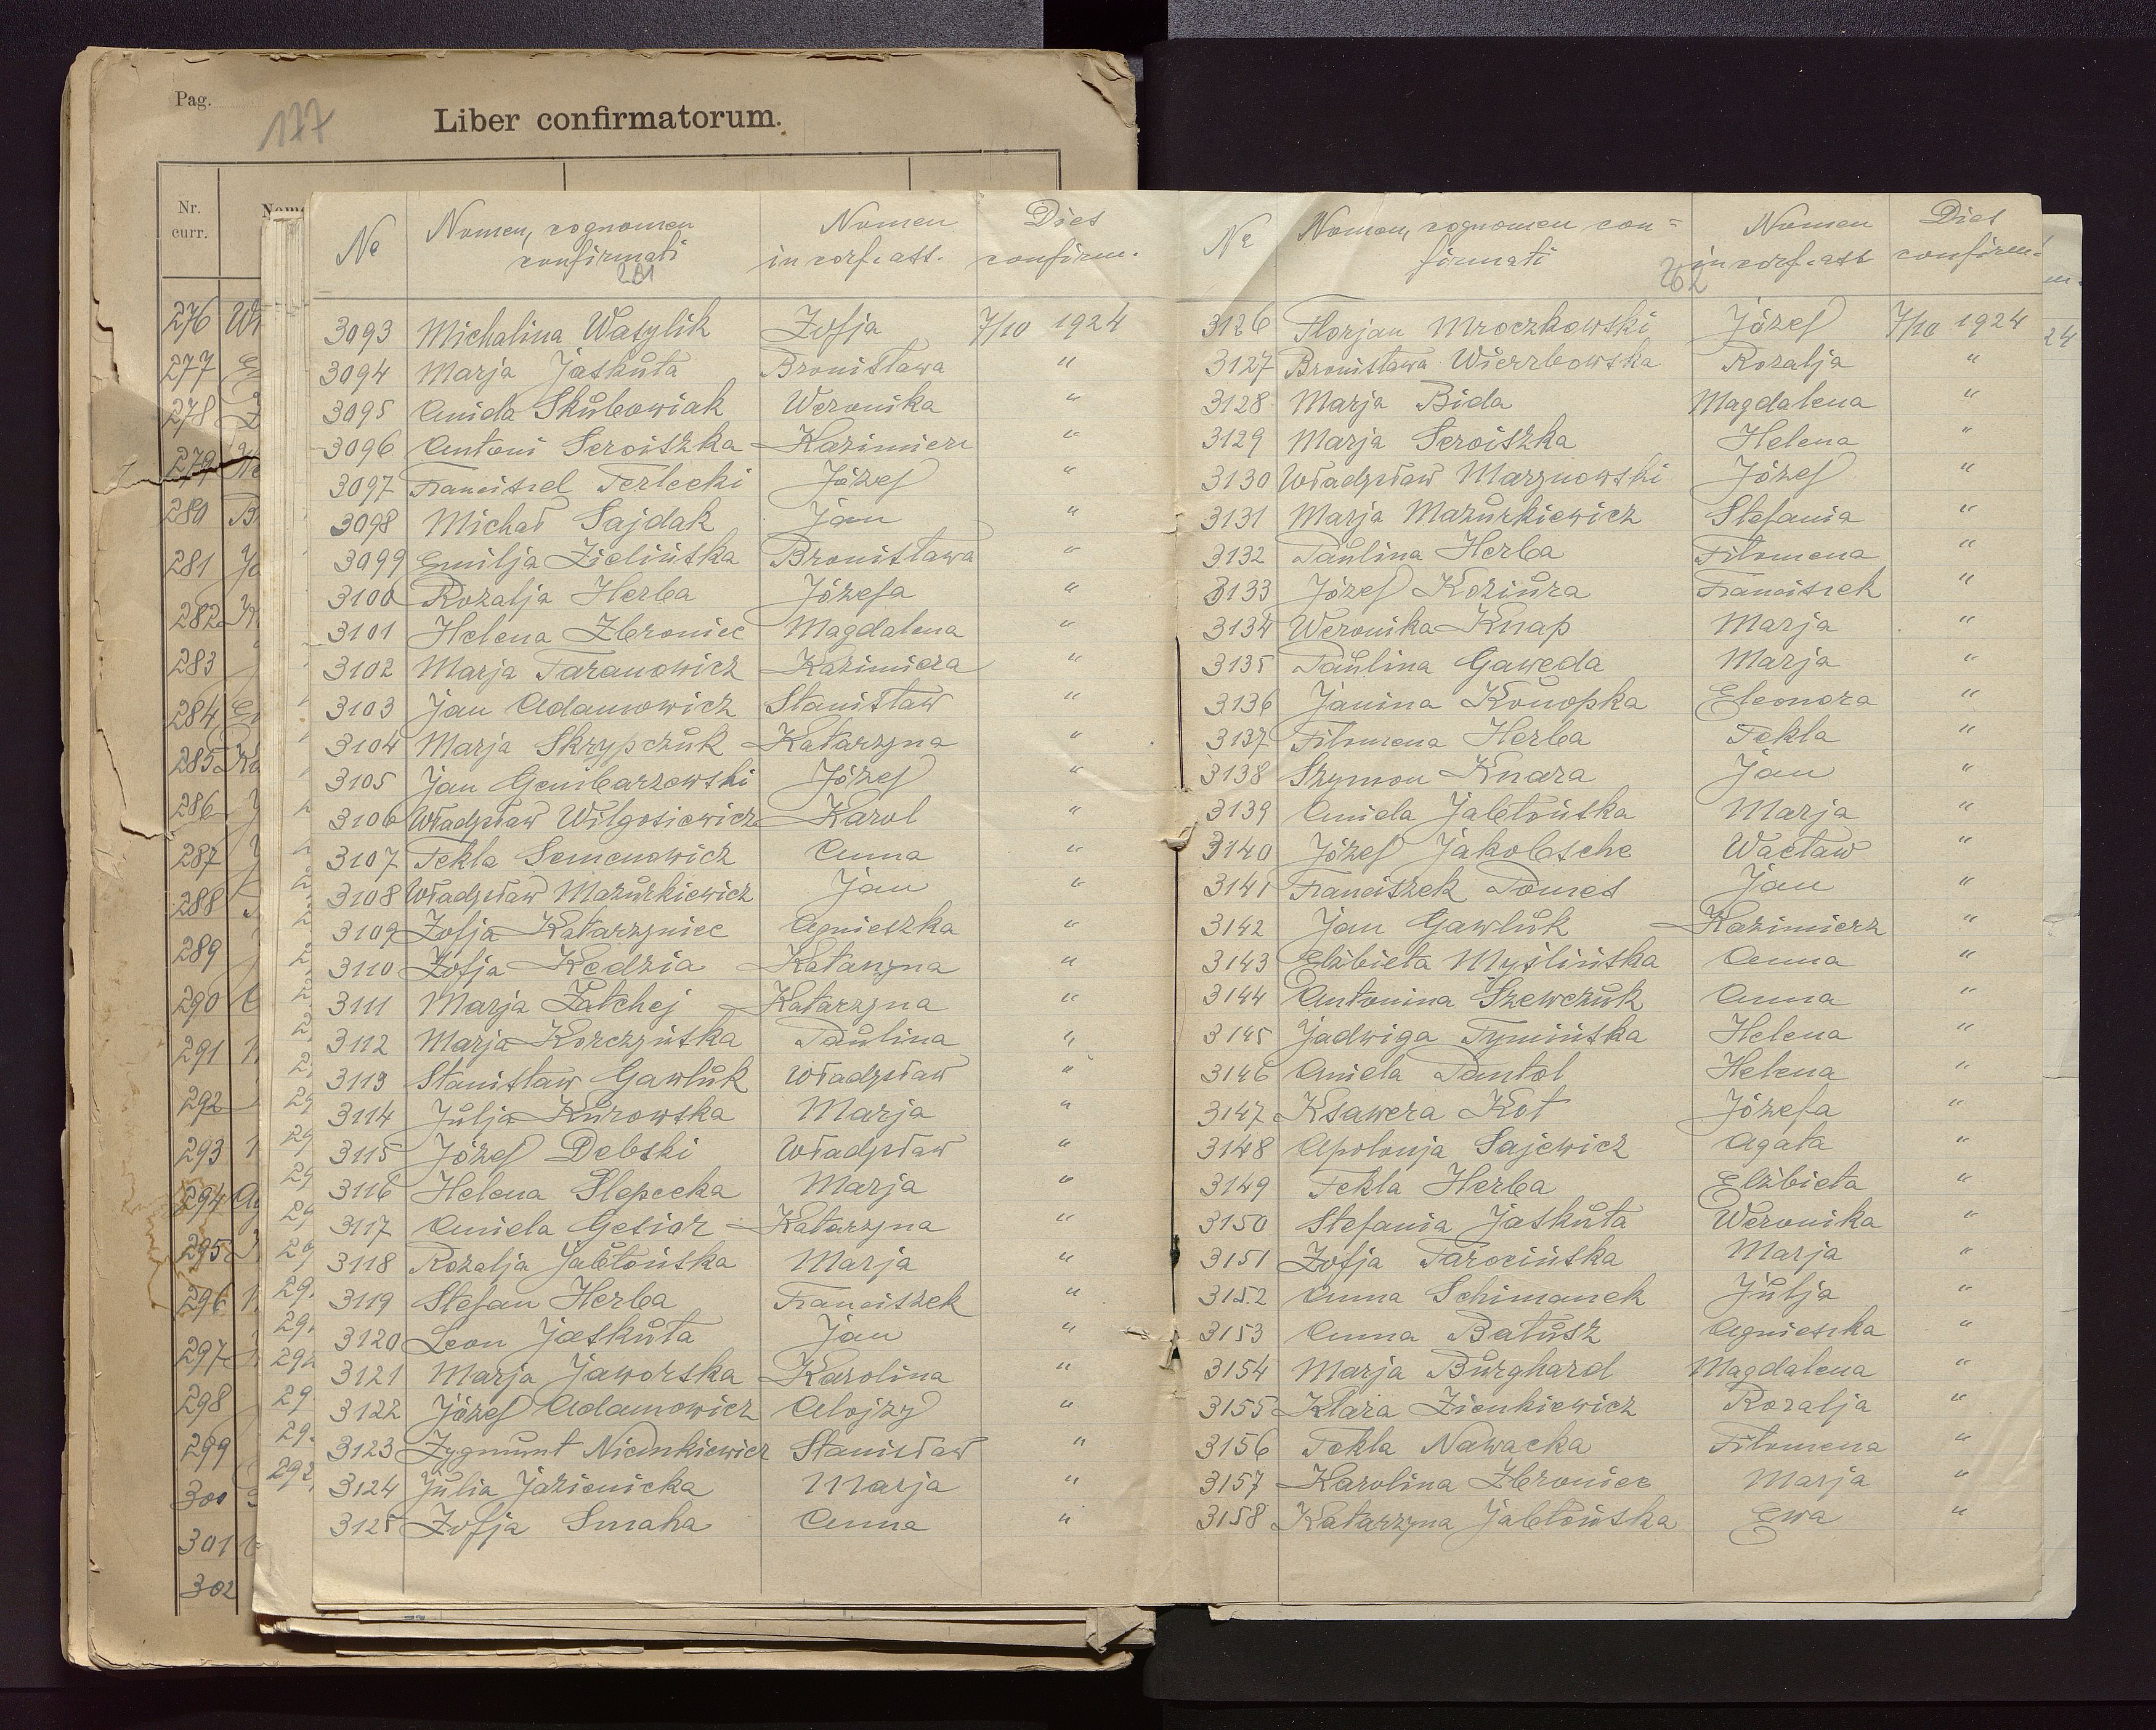 Pag.
177
Liber confirmatorum.
Nr.
curr.
276
277
278
279
280
281
282
283
284
285
286
287
288
289
290
291
292
293
294
295
296
297
298
299
300
301
302
№ Nomen, cognomen Nomen Dies
confirmati in conf. ass. confirm.
281
3093 Michalina Wasylik Zofja 7/10 1924
3094 Marja Jaskuła Bronisława "
3095 Aniela Skubowiak Weronika "
3096 Antoni Seroiszka Kazimierz "
3097 Terlecki Józef "
3098 Michał Sajdak Jan "
3099 Emilja Zielińska Bronisława "
3100 Rozalja Herba Józefa "
3101 Helena Zbroniec Magdalena "
3102 Marja Taranowicz Kazimiera "
3103 Jan Adamowicz Stanisław "
3104 Marja Skrypczuk Katarzyna "
3105 Jan Gembarzewski Józef "
3106 Władysław Wilgosiewicz Karol "
3107 Tekla Semenowicz Anna "
3108 Władysław Mazurkiewicz Jan "
3109 Zofja Katarzyniec Agnieszka "
3110 Zofja Kedzia Katarzyna "
3111 Marja Zatchej Katarzyna "
3112 Marja Korczyńska Paulina "
3113 Stanisław Gawluk Władysław "
3114 Julja Kurowska Marja "
3115 Józef Debski Władysław "
3116 Helena Slepecka Marja "
3117 Aniela Gesior Katarzyna "
3118 Rozalja Jabłońska Marja "
3119 Stefan Herba Franciszek "
3120 Leon Jaskuła Jan "
3121 Marja Jaworska Karolina "
3122 Józef Adamowicz Alojzy "
3123 Zygmunt Stanisław "
3124 Julia Jazienicka Marja "
3125 Zofja Smaha Anna "
№ Nomen, cognomen con= Nomen Dies
firmati in conf. ass confirm.
282
3126 Florjan Mroczkowski Józef 7/10 1924
3127 Bronisława Wierzbowska Rozalja "
3128 Marja Bida Magdalena "
3129 Marja Seroiszka Helena "
3130 Władysław Marynowski Józef "
3131 Marja Mazurkiewicz Stefania "
3132 Paulina Herba Filomena "
3133 Józef Koziura Franciszek "
3134 Weronika Knap Marja "
3135 Paulina Gaweda Marja "
3136 Janina Konopka Eleonora "
3137 Filomena Herba Tekla "
3138 Szymon Knara Jan "
3139 Aniela Jabłońska Marja "
3140 Józef Jakobsche Wacław "
3141 Franciszek Pomes Jan "
3142 Jan Gawluk Kazimierz "
3143 Elżbieta Myślińska Anna "
3144 Antonina Szewczuk Anna "
3145 Jadwiga Tymińska Helena "
3146 Aniela Pantol Helena "
3147 Ksawera Kot Józefa "
3148 Apolonja Sajewicz Agata "
3149 Tekla Herba Elżbieta "
3150 Stefania Jaskuła Weronika "
3151 Zofja Tarocińska Marja "
3152 Anna Schimanek Julja "
3153 Anna Batusz Agnieszka "
3154 Marja Burghard Magdalena "
3155 Klara Zienkiewicz Rozalja "
3156 Tekla Nawacka Filomena "
3157 Karolina Zbroniec Marja "
3158 Katarzyna Jabłońska Ewa "
24